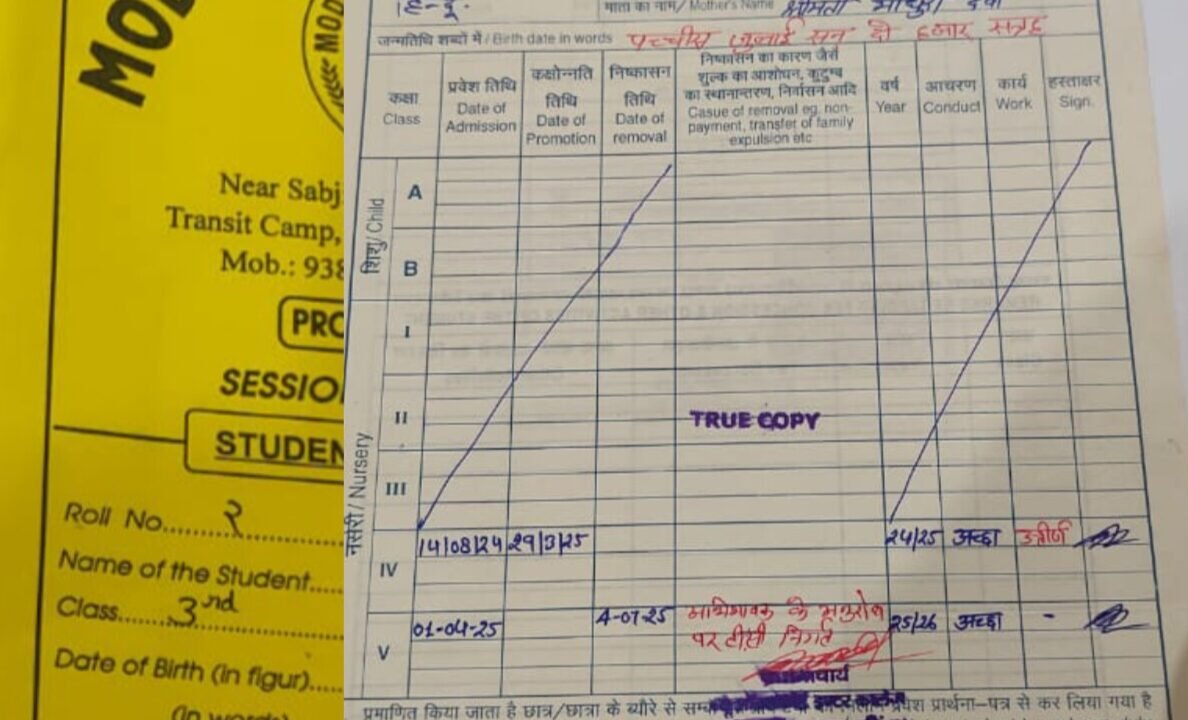 MOD
MOD
Near Sabj
Transit Camp,
Mob.: 938
PRO
SESSIO
STUDEN
Roll No......२
Name of the Student.....
Class......3nd
Date of Birth (in figur).....
(in words)
हिन्दू.
माता का नाम/ Mother's Name श्रीमती माधुरी देवी
जन्मतिथि शब्दों में / Birth date in words पच्चीस जुलाई सन दो हजार सत्रह
कक्षा
Class
प्रवेश तिथि
Date of
Admission
कक्षोन्नति
तिथि
Date of
Promotion
निष्कासन
तिथि
Date of
removal
निष्कासन का कारण जैसे
शुल्क का आशोधन, कुटुम्ब
का स्थानान्तरण, निर्वासन आदि
Casue of removal eg. non-
payment, transfer of family
expulsion etc
वर्ष
Year
आचरण
Conduct
कार्य
Work
हस्ताक्षर
Sign.
शिशु/ Child
A
B
नर्सरी / Nursery
I
II
TRUE COPY
III
IV
14/08/24 29/3/25 24/25 अच्छा उत्तीर्ण
V
01-04-25 4-07-25 अभिभावक के अनुरोध 25/26 अच्छा -
पर टीसी निर्गत
प्रमाणित किया जाता है छात्र/छात्रा के ब्यौरे से प्रार्थना-पत्र से कर लिया गया है